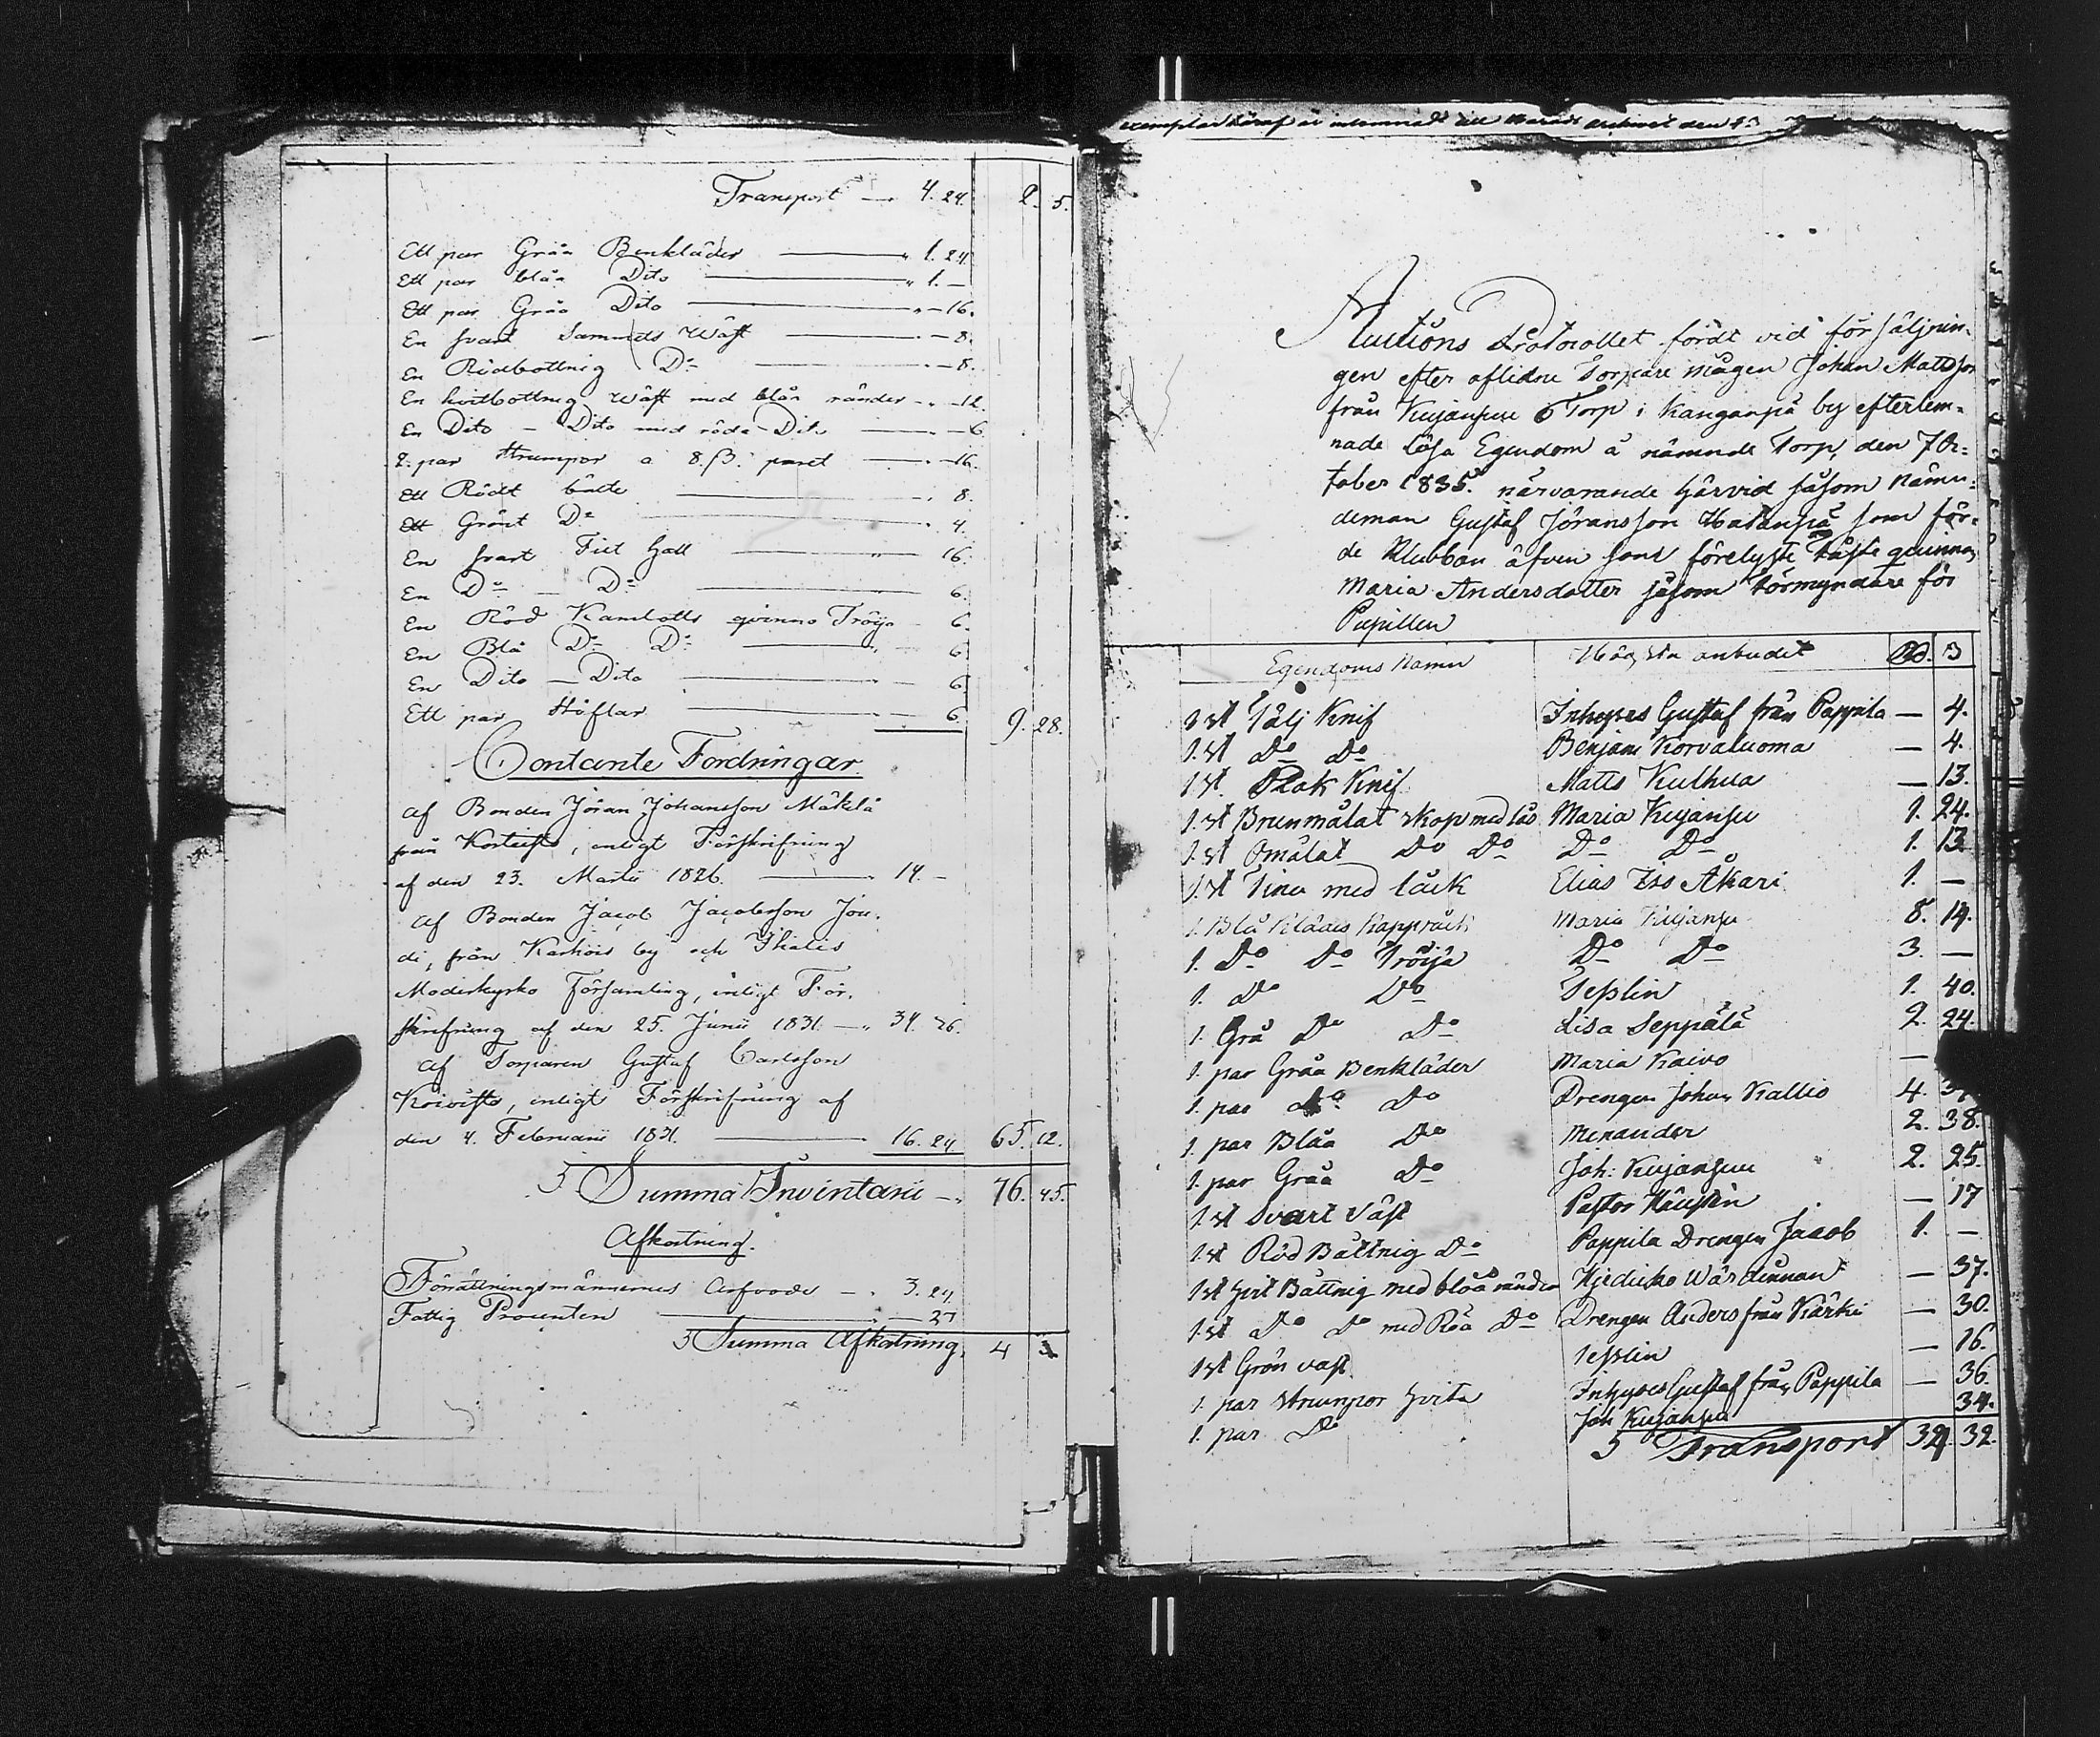 Transport — 4. 24. 2. 5.
Ett par Gråa Benkläder — 1. 24
Ett par blåa Dito — 1. —
Ett par Gråa Dito — 16.
En svart Sammets Wäst — 8.
En Rödbottnig Do — 8.
En hvitbottnig Wäst med blåa ränder — 12.
En Dito — Dito med röda Dito — 6
2. par Strumpor a 8. β. paret — 16.
Ett Rödt bälte — 8.
Ett Grönt Do — 4.
En svart Filt hatt — 16.
En Do — Do — 6.
En Röd Kamlotts qvinno Tröija — 6.
En Blå Do Do — 6
En Dito — Dito — 6.
Ett par Stöflar — 6 9. 28.
Contante Fordringar
Af Bonden Jöran Johansson Mäkelä
från , enligt Förskrifning
af den 23. Martii 1826. — 14. —
Af Bonden Jacob Jacobsson Jou-
di, från Karhois by och Ikalis
Moderkyrko Församling, enligt För-
skrifning af den 25. Junii 1831. — 34. 36.
Af Torparen Gustaf Carlsson
Koivisto, enligt Förskrifning af
den 4. Februarii 1831. — 16. 24 65. 12.
S Summa Inventarii — 76. 45.
Afkortning.
Förrättningsmännernes Arfvode — 3. 24
Fattig Procenten — 27
S Summa Afkortning. 4 3
exemplar häraf är inlemnadt till Härads Archivet den
Auctions Protocollet fördt vid försäljnin-
gen efter aflidne Torpare mågen Johan Mattsson
från Kujanpuu Torp i Kanganpä by efterlem-
nade lösa Egendom å nämnde Torp, den 7 Oc-
tober 1835. närvarande härvid såsom Nämn-
deman Gustaf Jöransson som för-
de Klubban äfven som förelyste qvinnan
Maria Andersdotter såsom Förmyndare för
Pupillen
Egendoms Namn Högsta anbudet Rd. β
1 st Tälj Knif Inhyses Gustaf från Pappila — 4.
1. st Do Do Benjam Korvaluoma — 4.
1 st. Rak Knif Matts Kulhua — 13.
1. st Brunmålat skåp med lås Maria Kujanpu 1. 24.
1. st Omålat Do Do Do Do 1. 13
1. st Tina med låck Elias Åkari 1. —
1. Blå Klädes Kappråck Maria Kujanpu 8. 14.
1. Do Do Tröija Do Do 3. —
1. Do Do Tesslin 1. 40.
1. Grå Do Do Lisa Seppälä 2. 24.
1. par Gråa Benkläder Maria Kaivo —
1. par Do Do Drengen Johan Kallio 4.
1. par Blåa Do Menander 2. 38.
1. par Gråa Do Joh: Kujanpuu 2. 25.
1. st Svart Väst Pastor — 17
1 st Röd Båttnig Do Pappila Drengen Jacob 1. —
1 st hvit Båttnig med blåa ränder Wärdinnan — 37.
1. st Do Do med Röa Do Drengen Anders från Kärki — 30.
1 st Grön väst. Tesslin — 16.
1. par Strumpor hvita Inhyses Gustaf från Pappila — 36.
1. par Do Joh Kujanpu 34.
S Transport 34 32.